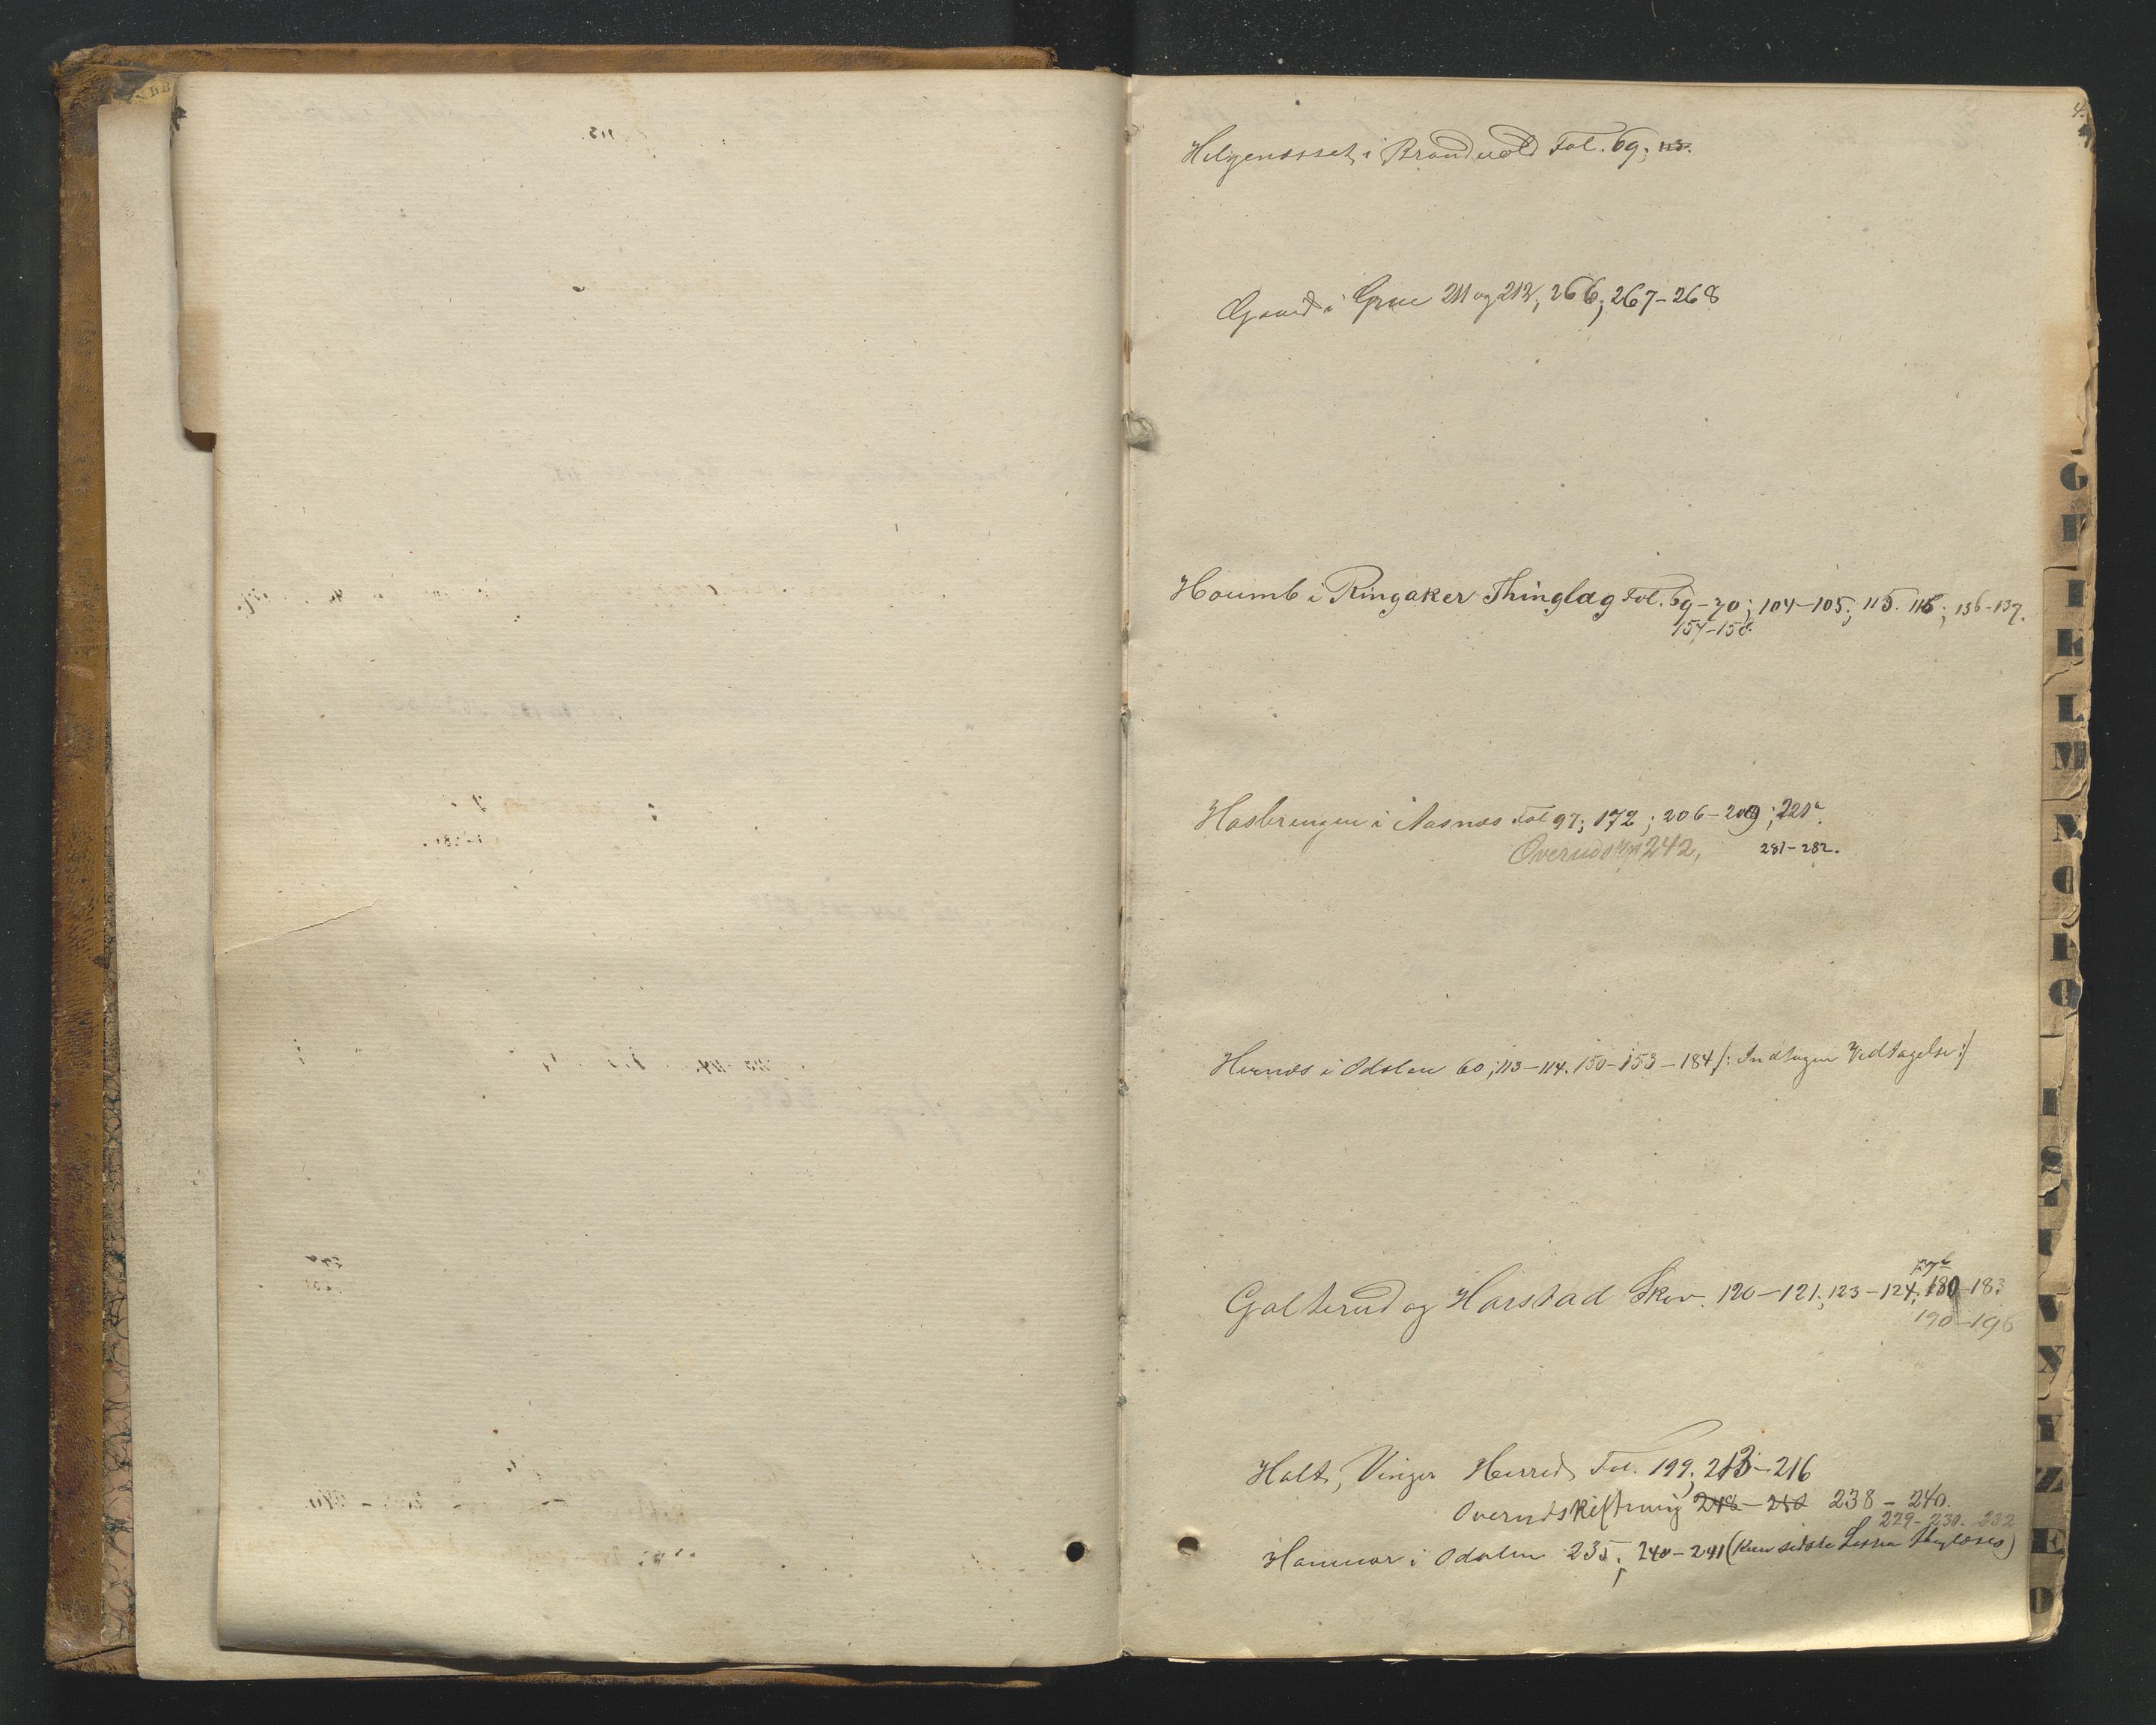 4.
Helgenæsset i Brandvold Fol. 69; 113.
Gaard i Grue 211 og 212; 266; 267-268
Houmb i Ringaker Thinglag Fol. 69-70; 104-105; 115. 116; 136-137.
157-158.
Hasbrengen i Aasnæs Fol 97; 172; 206-209; 221a.
242, 281-282.
Hernæs i Odalen 60; 113-114. 150-153-184 /: Indtagen Vedtagelse :/
Galterud og Harstad Skov. 120-121; 123-124; 180-183
190-196
Holt, Vinger Herred, Fol. 199; 213-216
Overudskiftning 248-250 238-240.
229-230. 232
Hammer i Odalen 235; 240-241 (Kun sidste Thinglæses)
G
F
I
K
L
M
N
O
P
Q
S
T
V
X
Y
Z
Æ
Ø